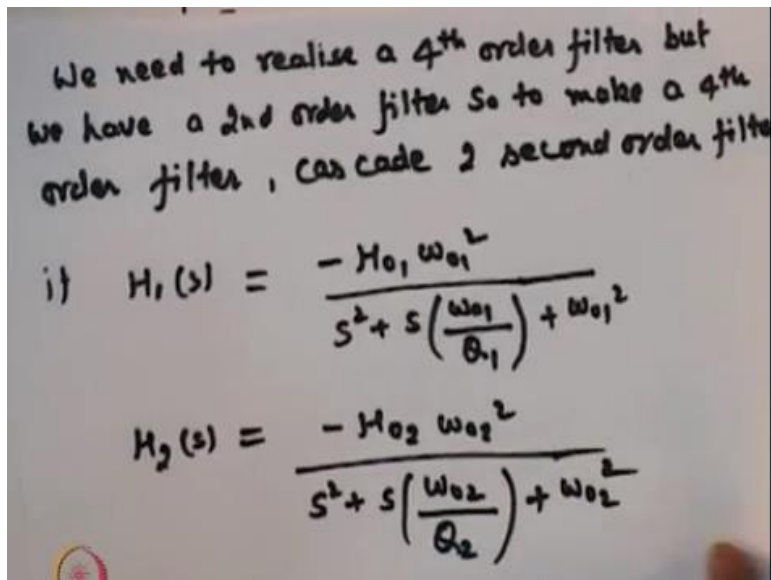 We need to realise a 4th order filter but
we have a 2nd order filter So to make a 4th
order filter, cascade 2 second order filte
if H₁(s) = - H₀₁ ω₀₁² / s² + s (ω₀₁ / Q₁) + ω₀₁²
H₂(s) = - H₀₂ ω₀₂² / s² + s (ω₀₂ / Q₂) + ω₀₂²